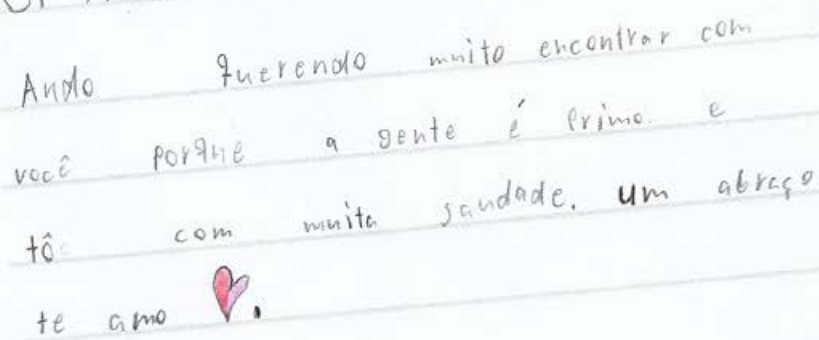 Ando querendo muito encontrar com
você porque a gente é primo. e
tô com muita saudade. um abraço
te amo